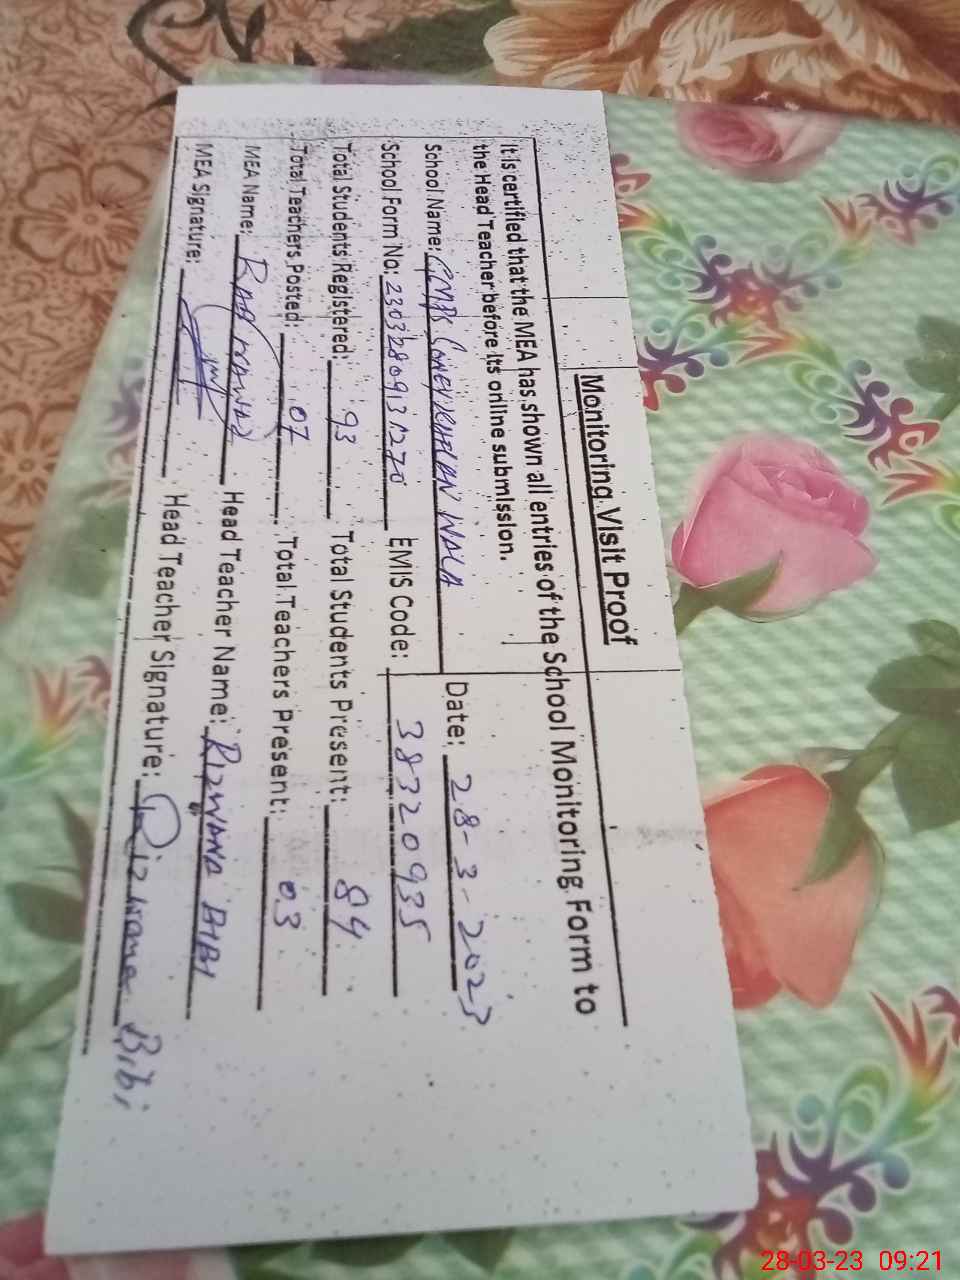 Monitoring Visit Proof
It is certified that the MEA has shown all entries of the School Monitoring Form to
the Head Teacher before its online submission.
School Name: GMPS WALA Date: 28-3-2023
School Form No: EMIS Code: 38320935
Total Students Registered: 93 Total Students Present: 84
Total Teachers Posted: 07 Total Teachers Present: 03
MEA Name: RAB NAWAZ Head Teacher Name: RIZWANA BIBI
MEA Signature: Head Teacher Signature: Rizwana Bibi
28-03-23 09:21